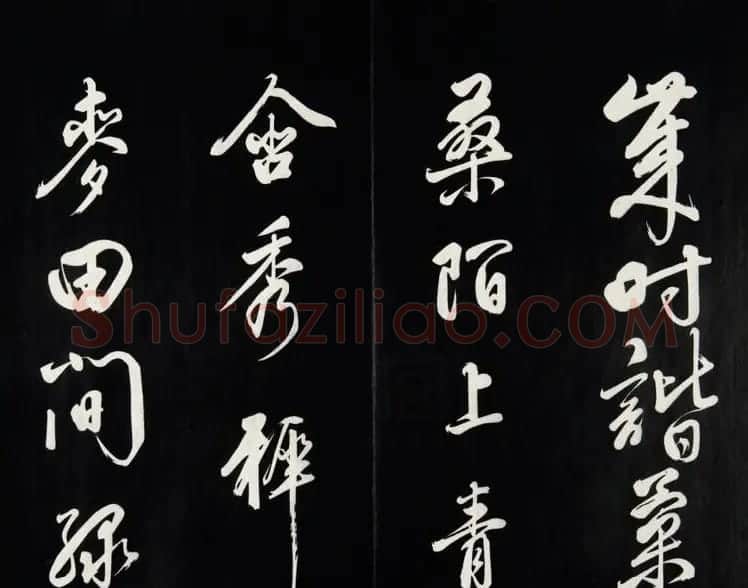 歲時諧
桑陌上青
含秀
麥田間緑
Shufaziliao.COM